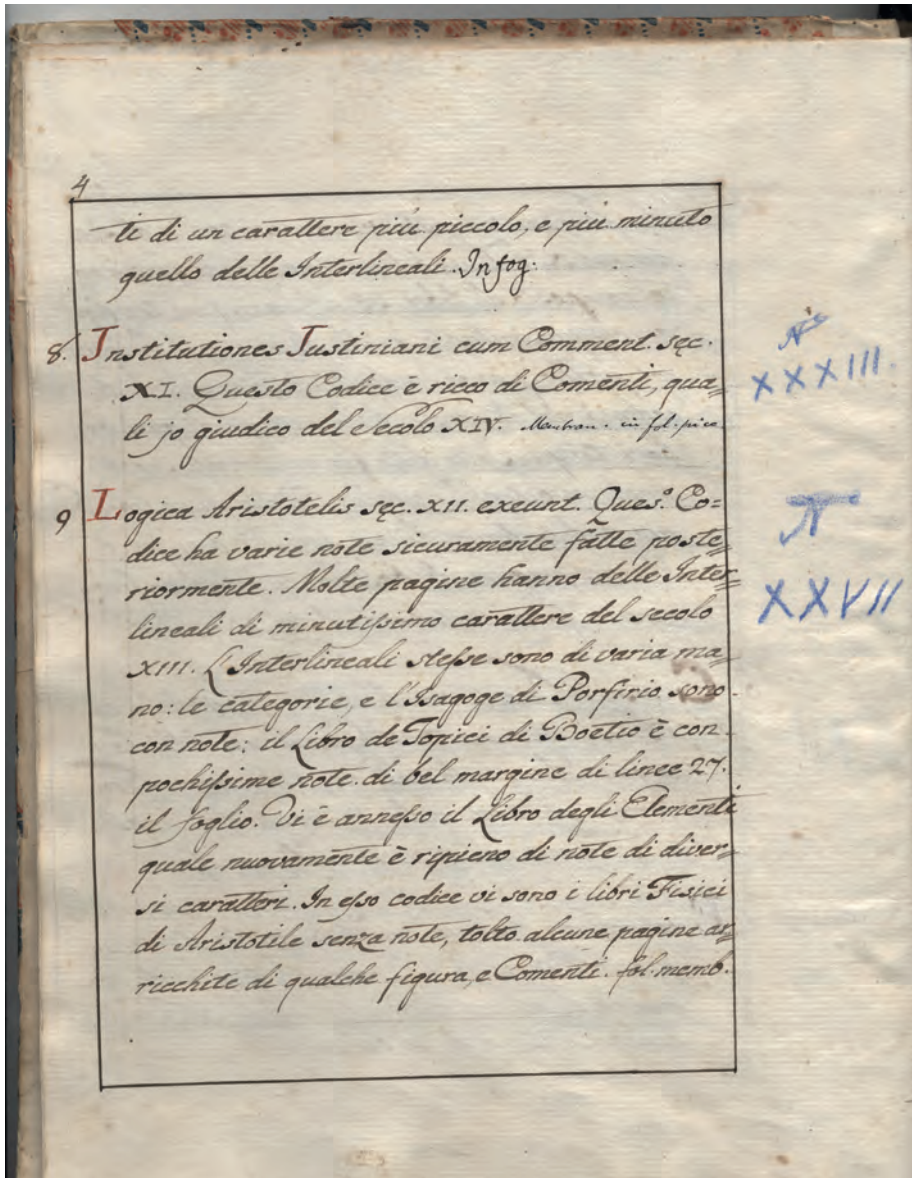 4
ti di un carattere piú piccolo, e piú minuto
quello delle Interlineali. In fog:
8. Institutiones Justiniani cum Comment. sęc.
XI. Questo Codice è ricco di Comenti, qua=
li jo giudico del Secolo XIV. Membran. in fol. picc
N.o
XXXIII.
9 Logica Aristotelis sęc. XII. exeunt. Ques.o Co=
dice ha varie note sicuramente fatte poste=
riormente. Molte pagine hanno delle Inter=
lineali di minutissimo carattere del secolo
XIII. L'Interlineali stesse sono di varia ma=
no: le categorie, e l'Isagoge di Porfirio sono
con note; il Libro de Topici di Boetio è con
pochissime note di bel margine di linee 27.
il foglio. Vi è annesso il Libro degli Elementi
quale nuovamente è ripieno di note di diver=
si caratteri. In esso codice vi sono i libri Fisici
di Aristotile senza note, tolto alcune pagine ar=
ricchite di qualche figura, e Comenti. fol. memb.
N
XXVII